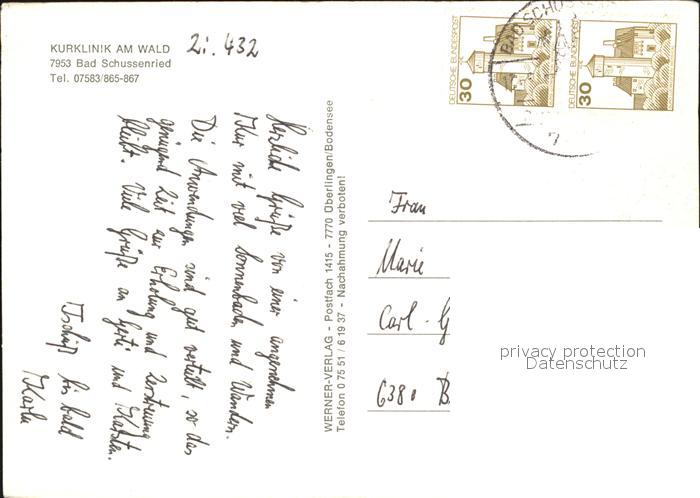 KURKLINIK AM WALD
7953 Bad Schussenried
Tel. 07583/865-867
Zi. 432
Herzliche Grüße von einer angenehmen
Kur mit viel Sonnenbaden und Wandern.
Die Anwendungen sind gut verteilt, so das
genügend Zeit zur Erholung und Zerstreuung
bleibt. Viele Grüße an Gerti und Karsten.
Tschüß bis bald
Karla
WERNER-VERLAG - Postfach 1415 - 7770 Überlingen/Bodensee
Telefon 0 75 51 / 6 19 37 - Nachahmung verboten!
DEUTSCHE BUNDESPOST
30
DEUTSCHE BUNDESPOST
30
BAD SCHUSS
Frau
Marie
Carl-G
6380 B
privacy protection
Datenschutz